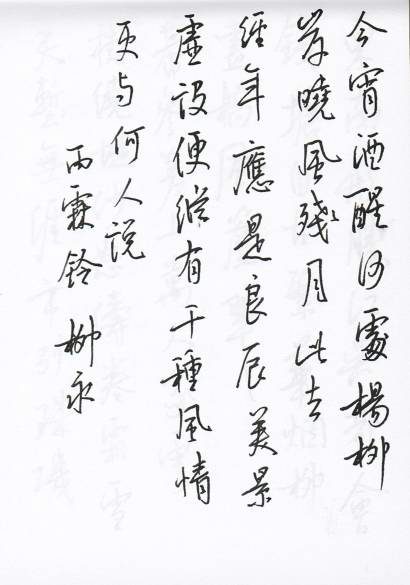 今宵酒醒何處楊柳
岸曉風殘月此去
經年應是良辰美景
虛設便縱有千種風情
更与何人説
雨霖鈴 柳永